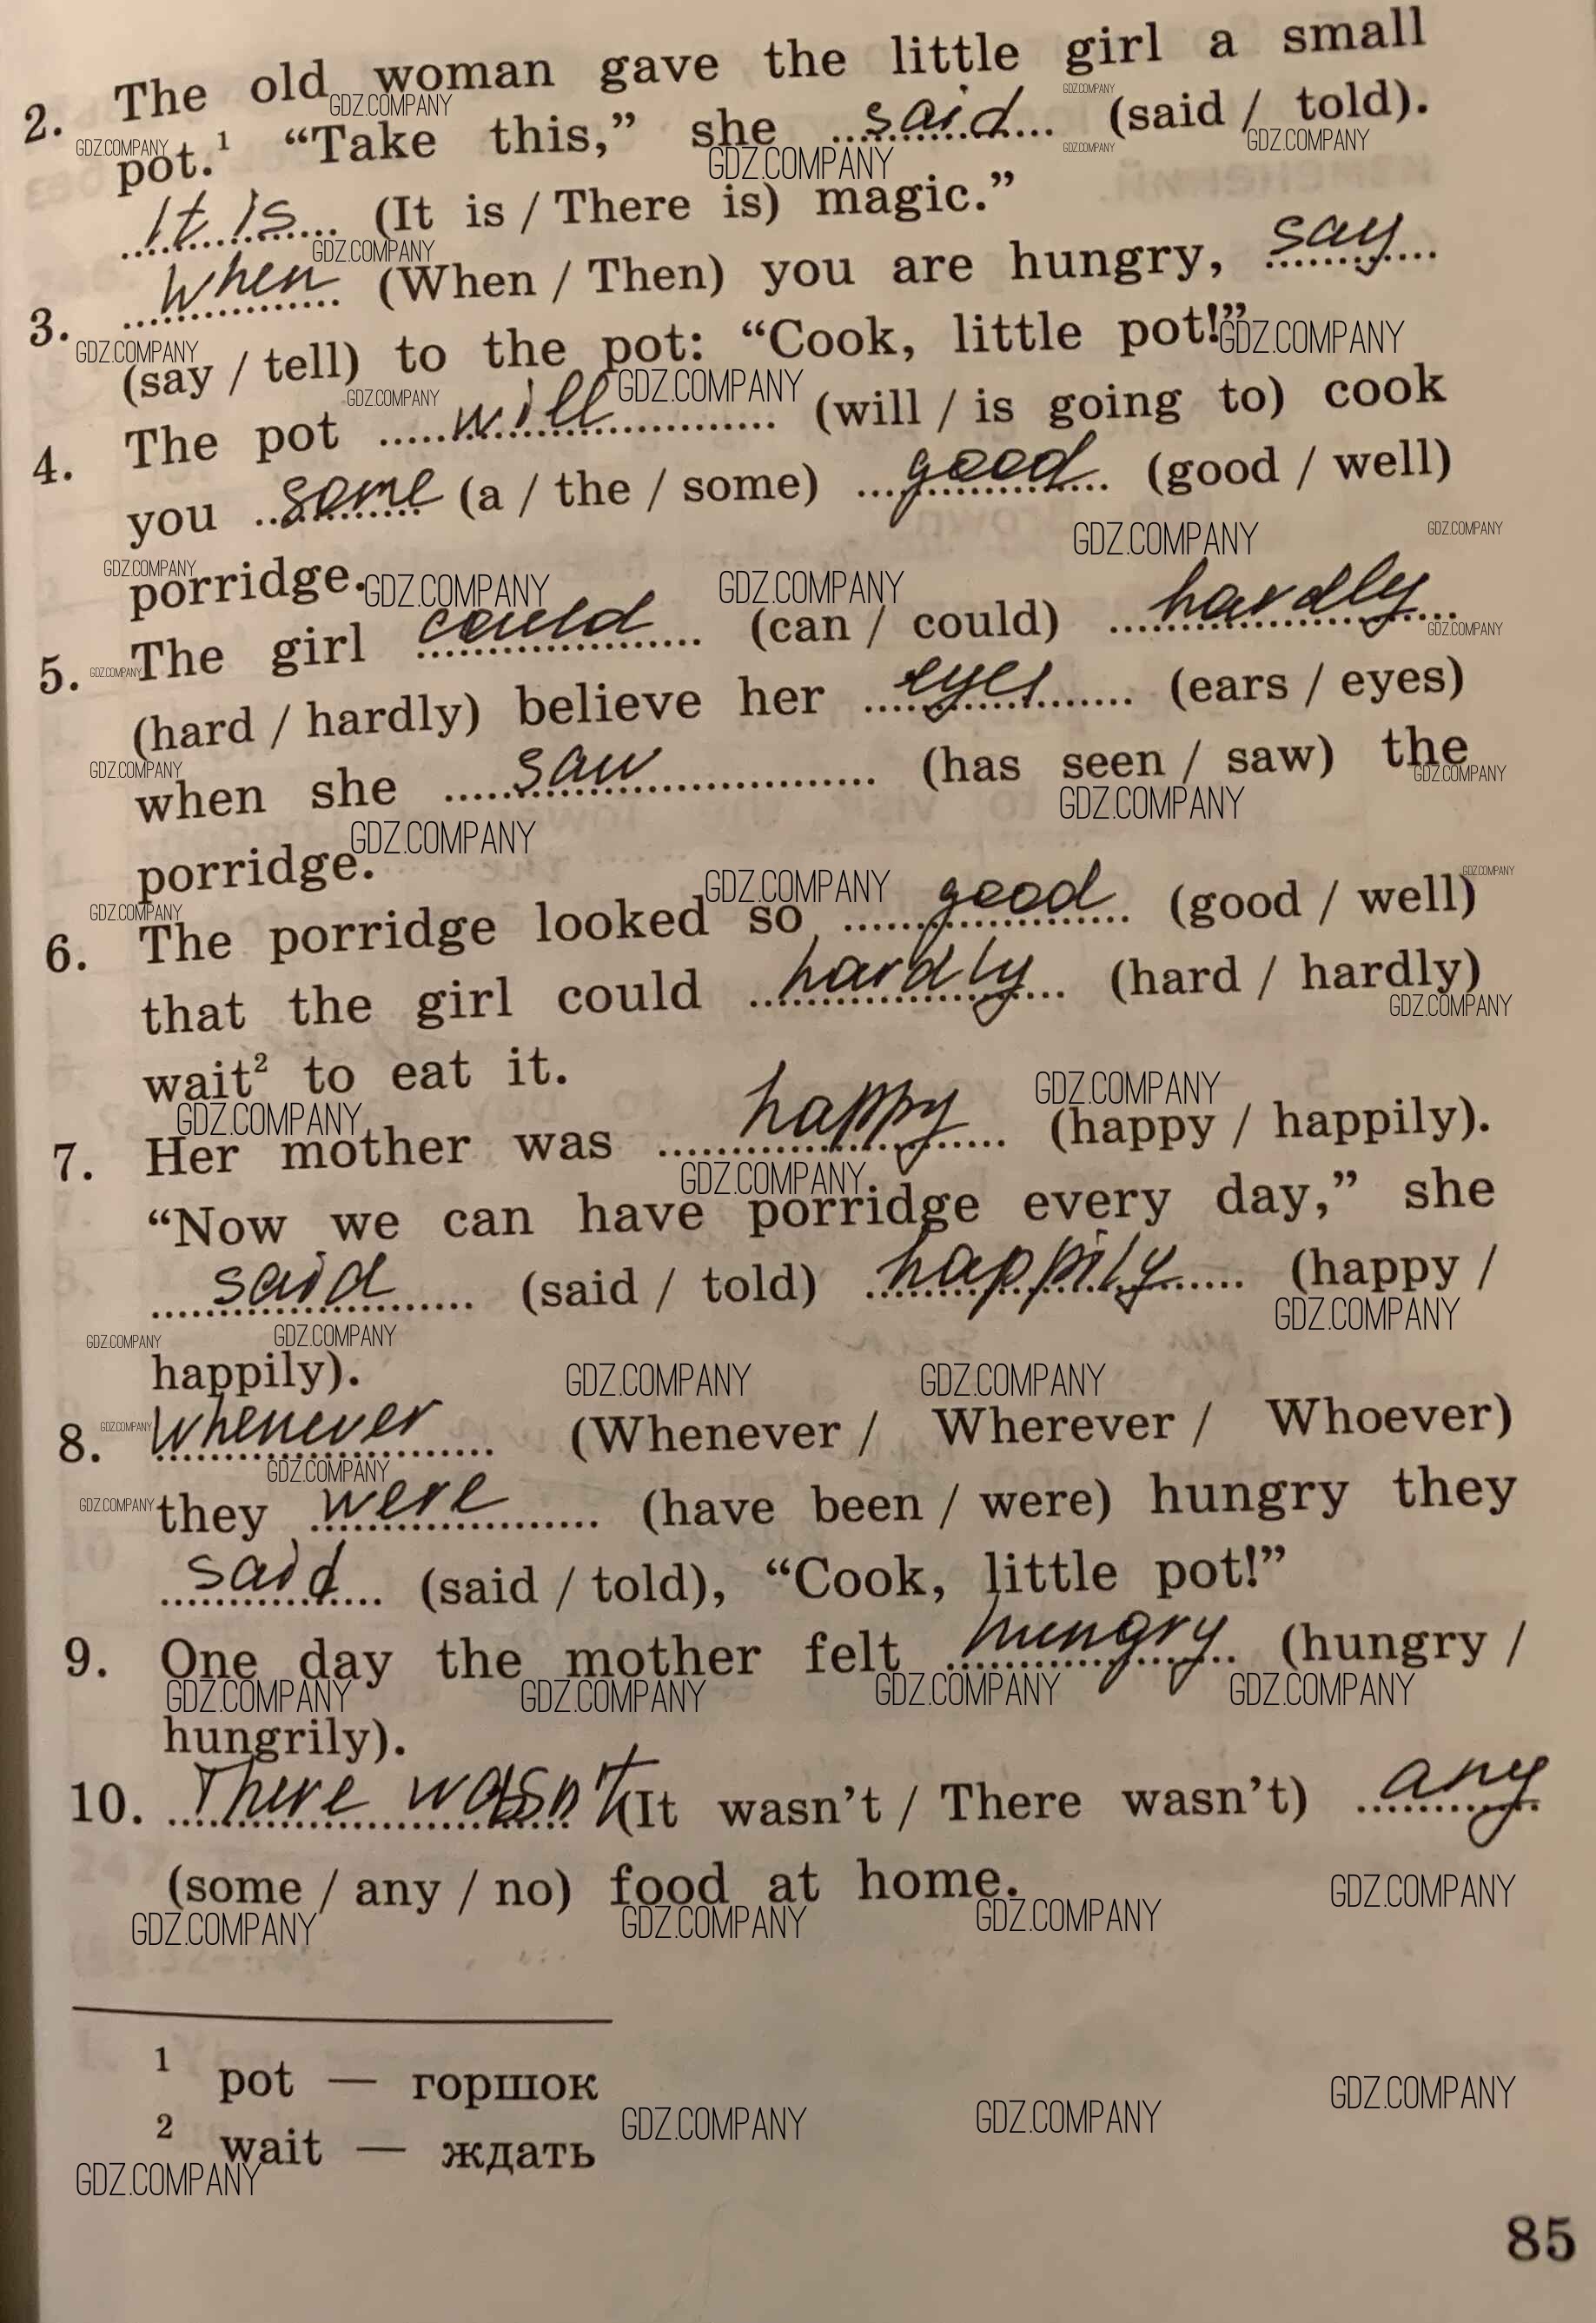 2. The old woman gave the little girl a small
pot.¹ “Take this,” she said (said / told).
It is (It is / There is) magic.”
3. When (When / Then) you are hungry, say
(say / tell) to the pot: “Cook, little pot!”
4. The pot will (will / is going to) cook
you some (a / the / some) good (good / well)
porridge.
5. The girl could (can / could) hardly
(hard / hardly) believe her eyes (ears / eyes)
when she saw (has seen / saw) the
porridge.
6. The porridge looked so good (good / well)
that the girl could hardly (hard / hardly)
wait² to eat it.
7. Her mother was happy (happy / happily).
“Now we can have porridge every day,” she
said (said / told) happily (happy /
happily).
8. Whenever (Whenever / Wherever / Whoever)
they were (have been / were) hungry they
said (said / told), “Cook, little pot!”
9. One day the mother felt hungry (hungry /
hungrily).
10. There wasn't (It wasn’t / There wasn’t) any
(some / any / no) food at home.
¹ pot — горшок
² wait — ждать
GDZ.COMPANY
85